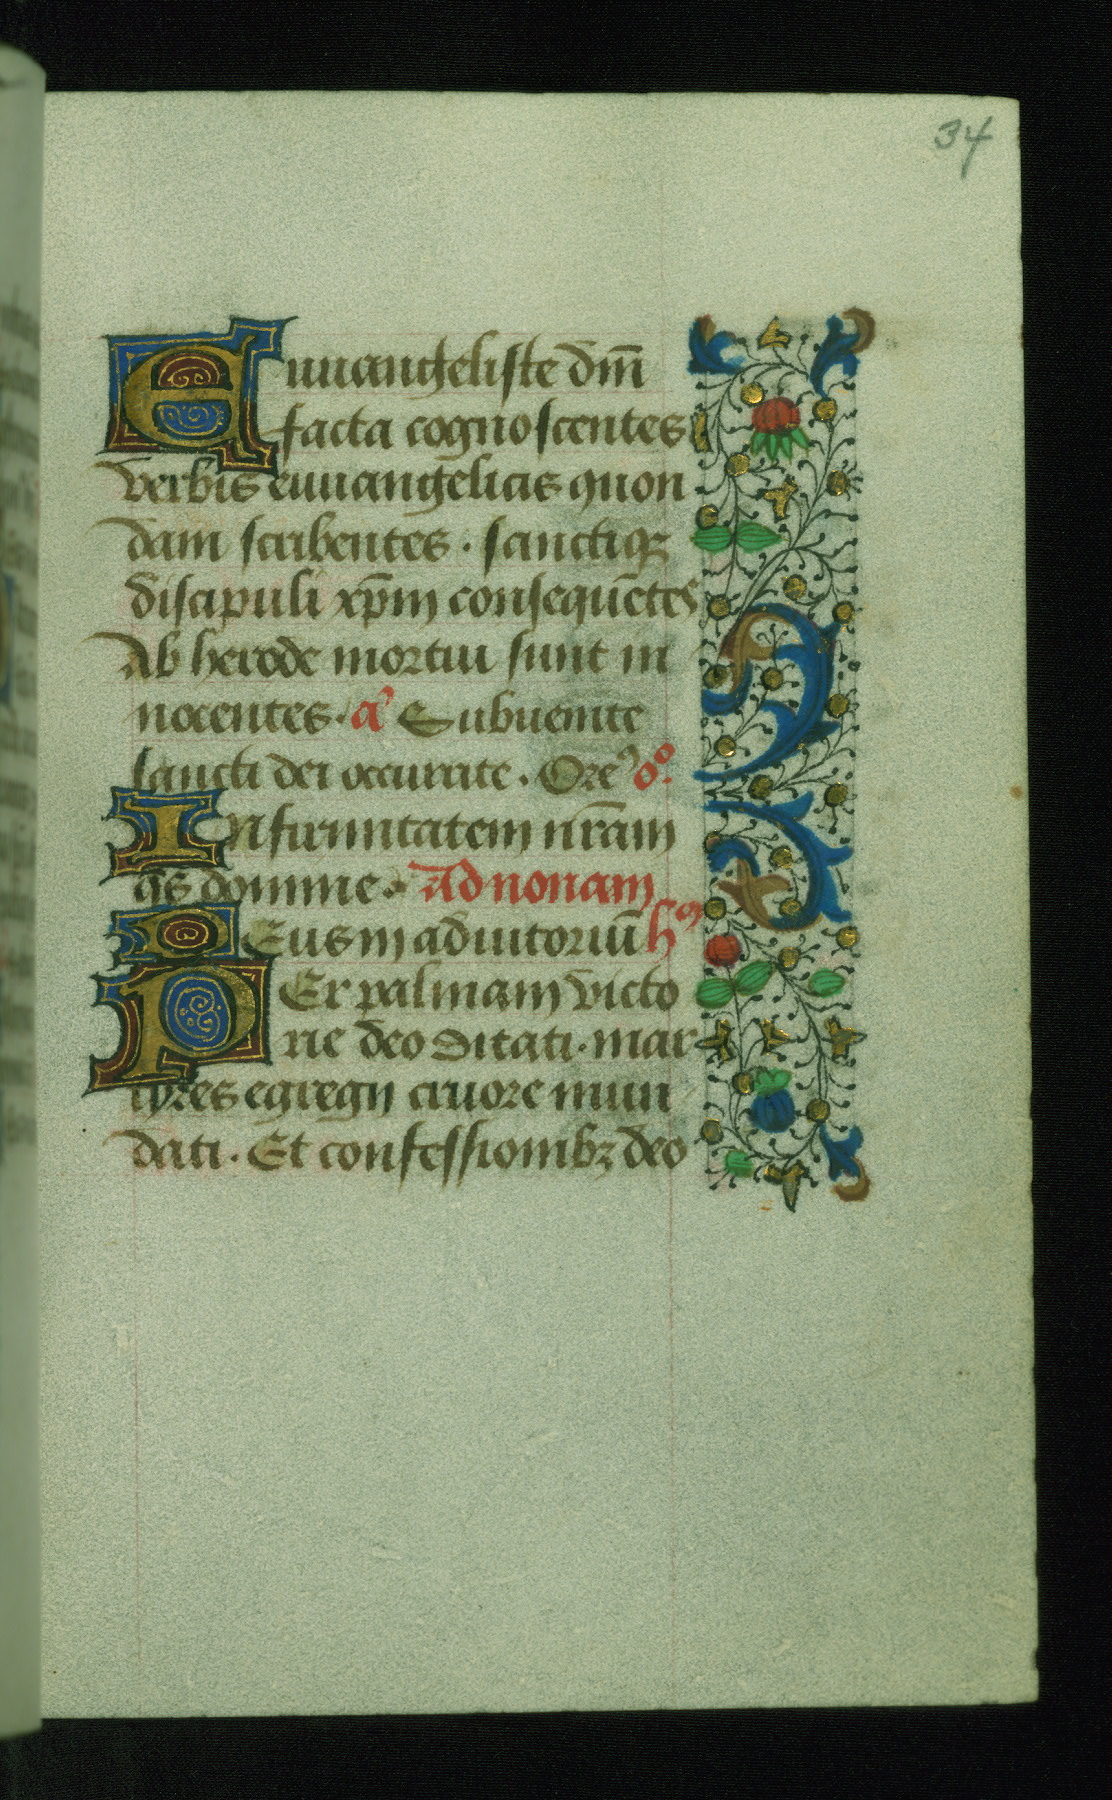 34
Euuangeliste dm̄
facta cognoscentes
verbis euuangelicis quon
dam scribentes · sanctiqꝫ
discipuli xp̄m consequētes
Ab herode mortui sunt in
nocentes · a᷒ Subuenite
sancti dei occurrite · Ore᷒ oo᷒
Infirmitatem nr̄am
qs domine · Ad nonam
Deus in adiutoriū hꝰ
Per palmam victo
rie deo ditati · mar
tyres egregij cruore mun
dati · Et confessionibꝫ deo